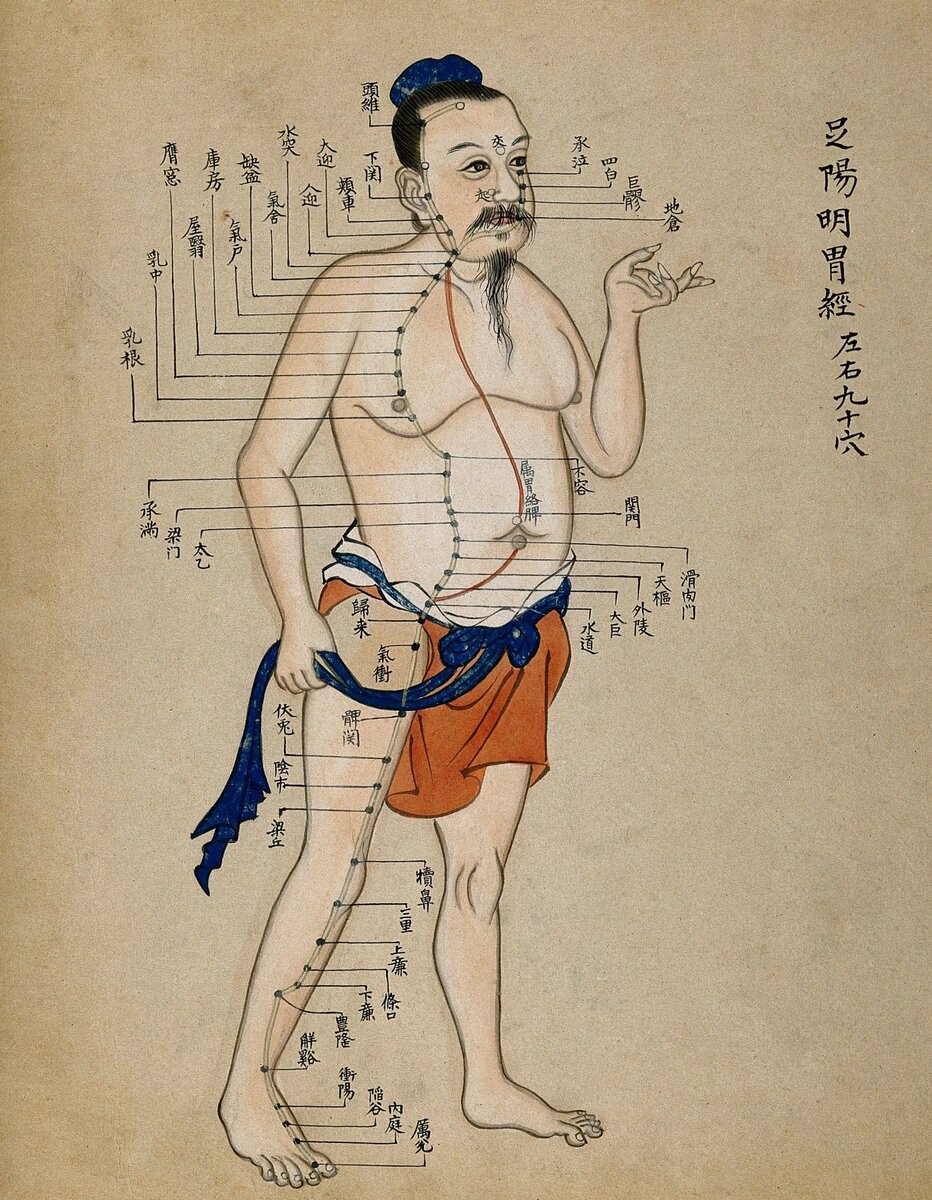 足陽明胃經 左右九十穴
頭維
下関
頬車
大迎
人迎
水突
氣舎
缺盆
氣戶
庫房
屋翳
膺窓
乳中
乳根
承泣
四白
巨髎
地倉
属胃絡脾
不容
承満
梁门
関門
太乙
滑肉门
天樞
外陵
大巨
水道
歸来
氣衝
髀関
伏兎
陰市
梁丘
犢鼻
三里
上廉
條口
下廉
豊隆
解谿
衝陽
陷谷
內庭
厲兊